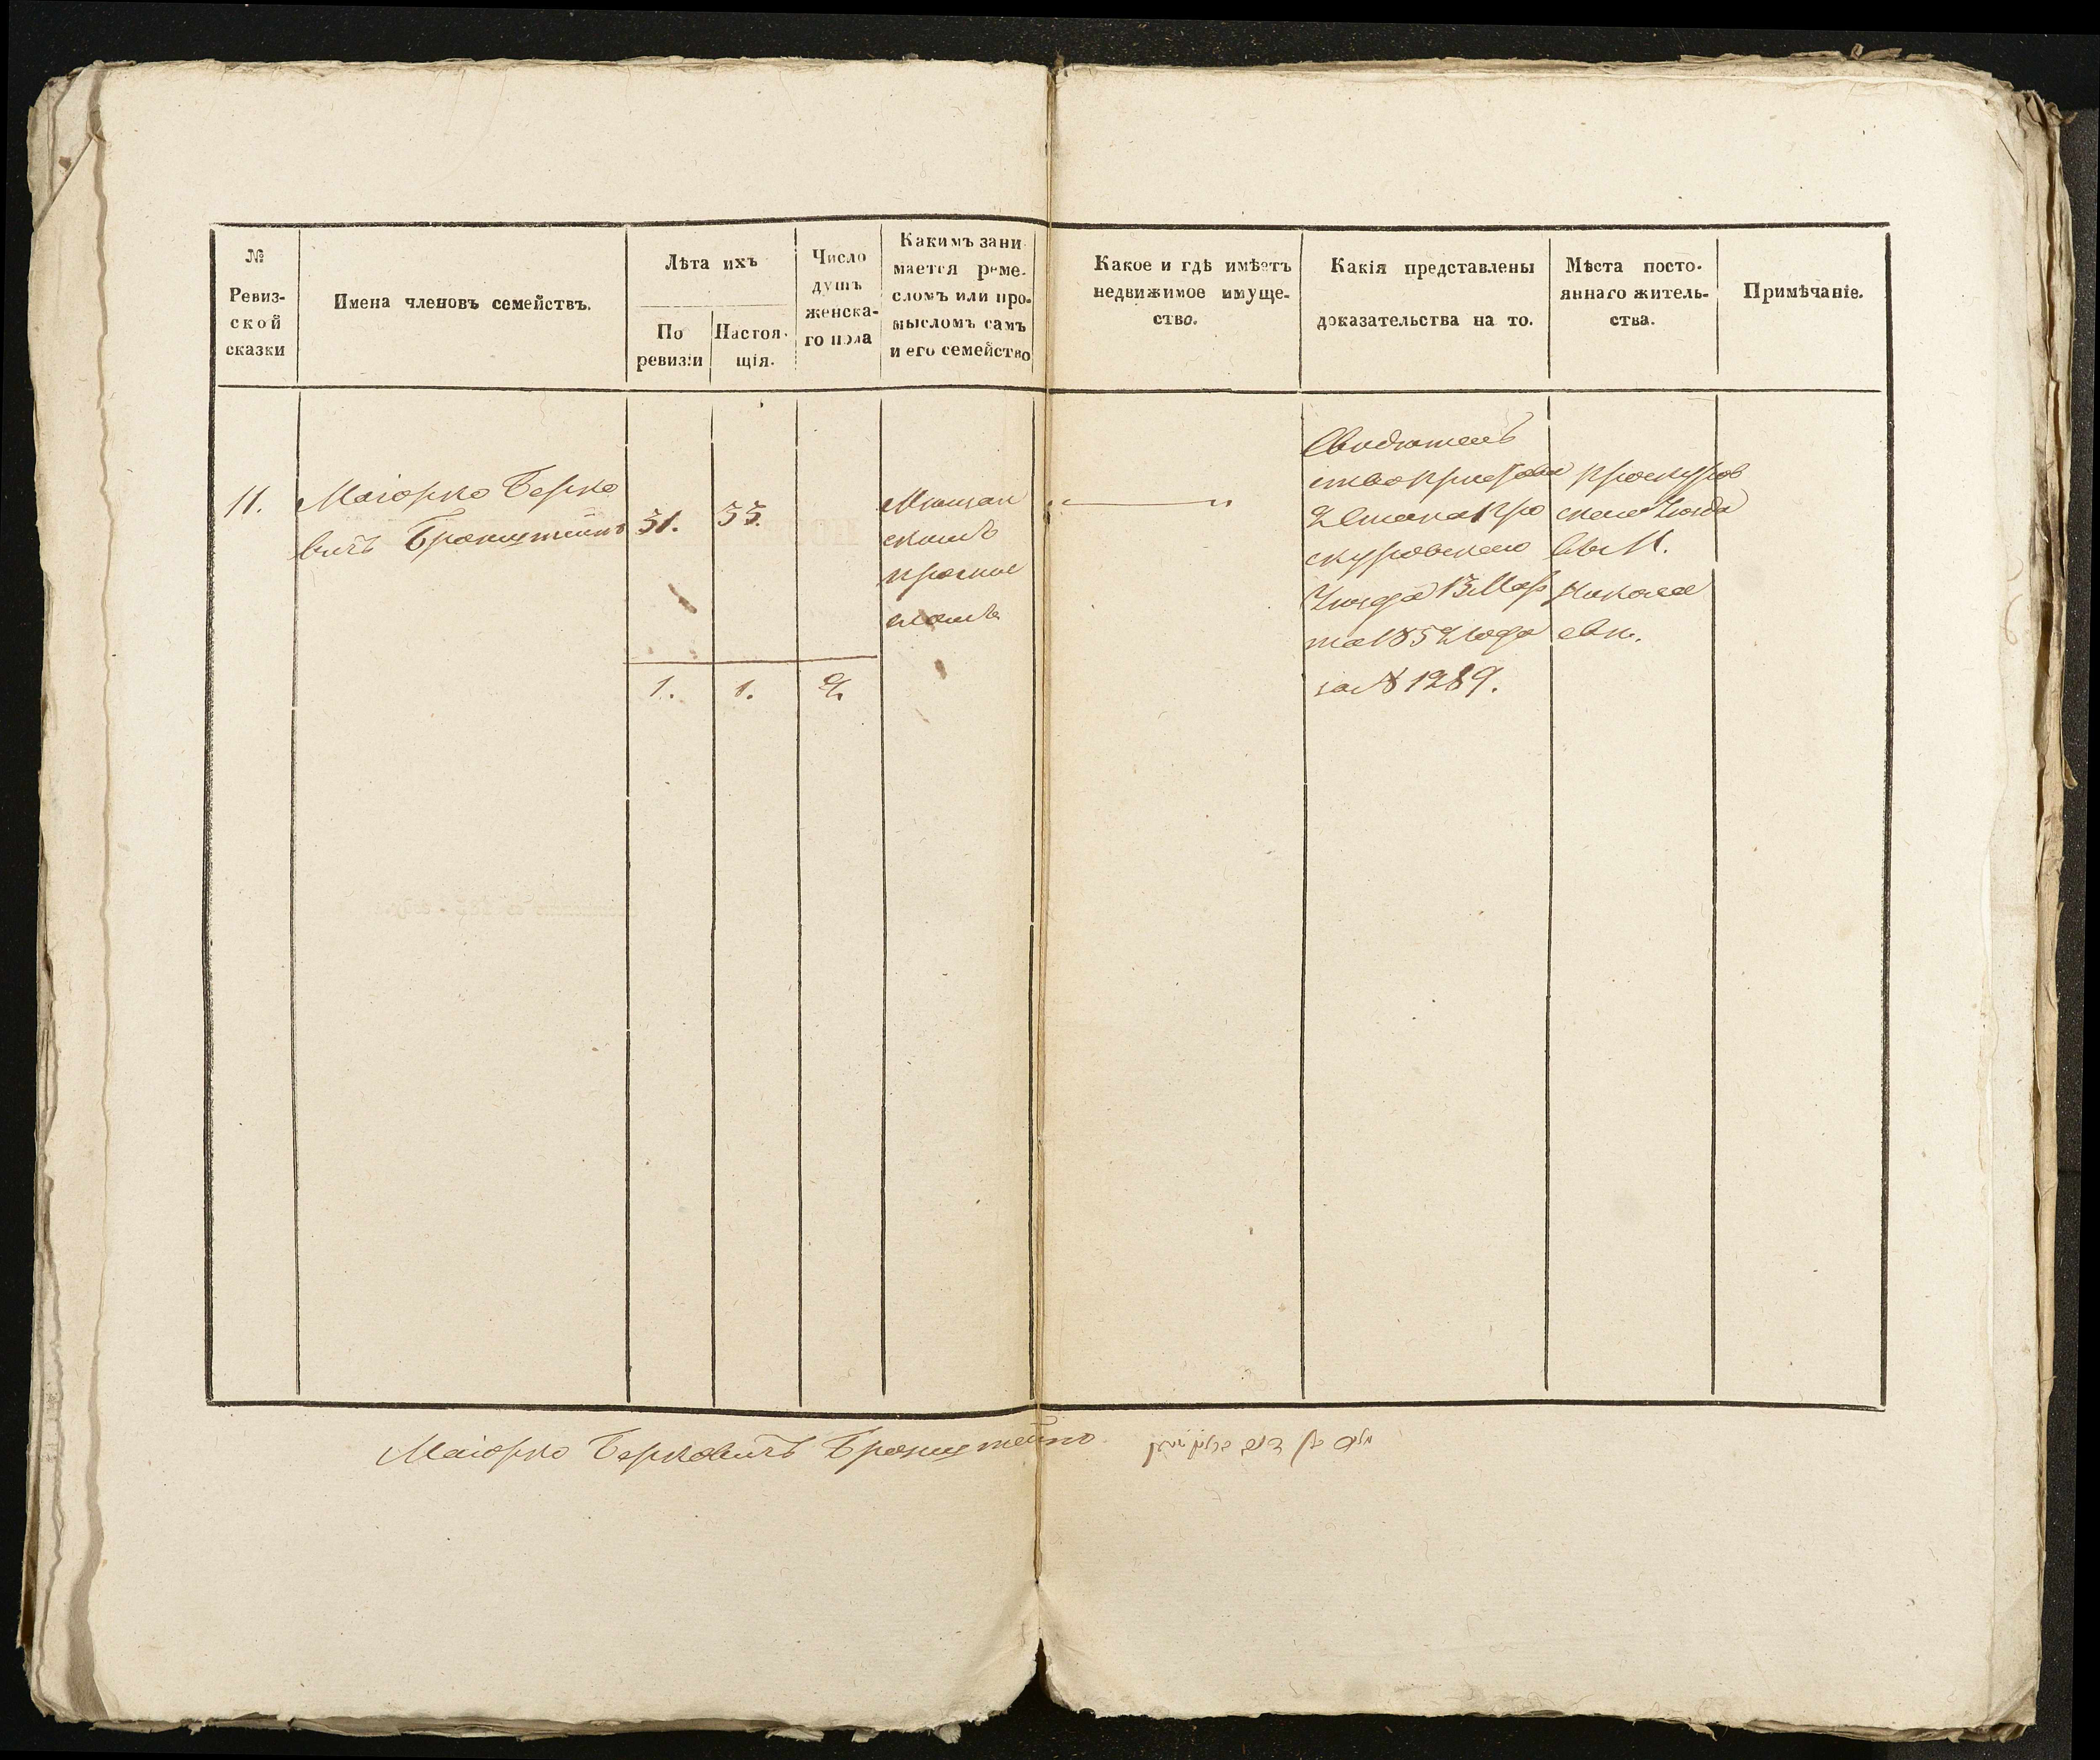 №
Ревиз-
ской
сказки
Имена членовъ семействъ.
Лѣта ихъ
По
ревизіи
Настоя-
щія.
Число
душъ
женска-
го пола
Какимъ зани
мается реме-
сломъ или про-
мысломъ самъ
и его семейство
Какое и гдѣ имѣетъ
недвижимое имуще-
ство.
Какія представлены
доказательства на то.
Мѣста посто-
яннаго житель-
ства.
Примѣчаніе.
11.
Маіорко Берко
вичъ Бронштейнъ
31.
33.
Мѣщан
скимъ
промы
сломъ
Свидѣтель
ство пристава
2 Стана Про
скуровскаго
Уѣзда 13 Мар
та 1852 года
за № 1289.
Проскуров
скаго Уѣзда
въ М.
Никола
евѣ.
1.
1.
2.
Маіорко Берковичъ Бронштейнъ